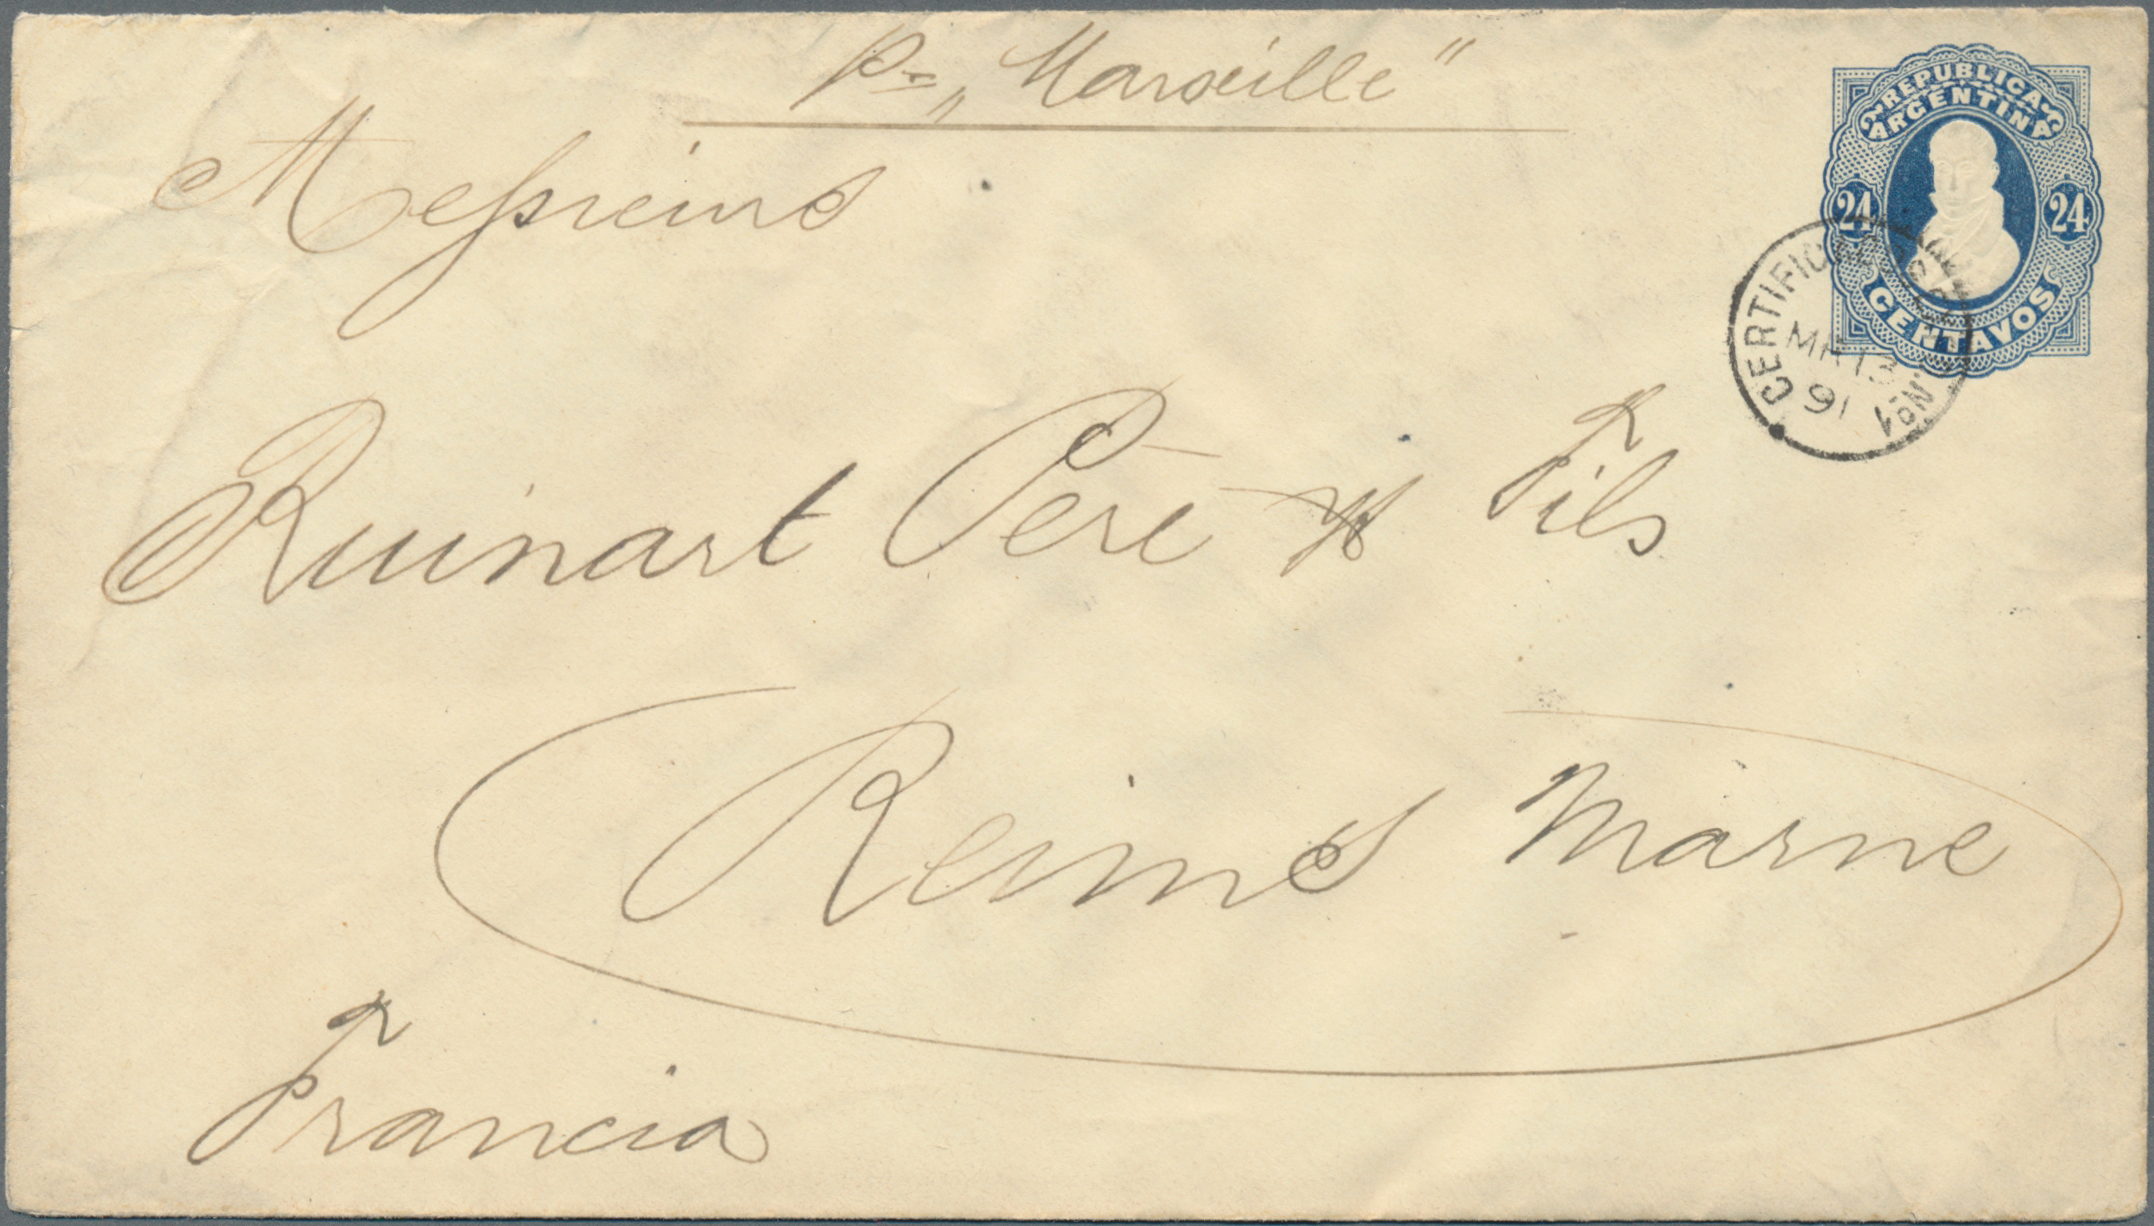 pr „Marseille"
Messieurs
REPUBLICA
ARGENTINA
24 24
CENTAVOS
CERTIFICADOS
MR 13
91
No. 1
Ruinart Père & Fils
Reims Marne
Francia